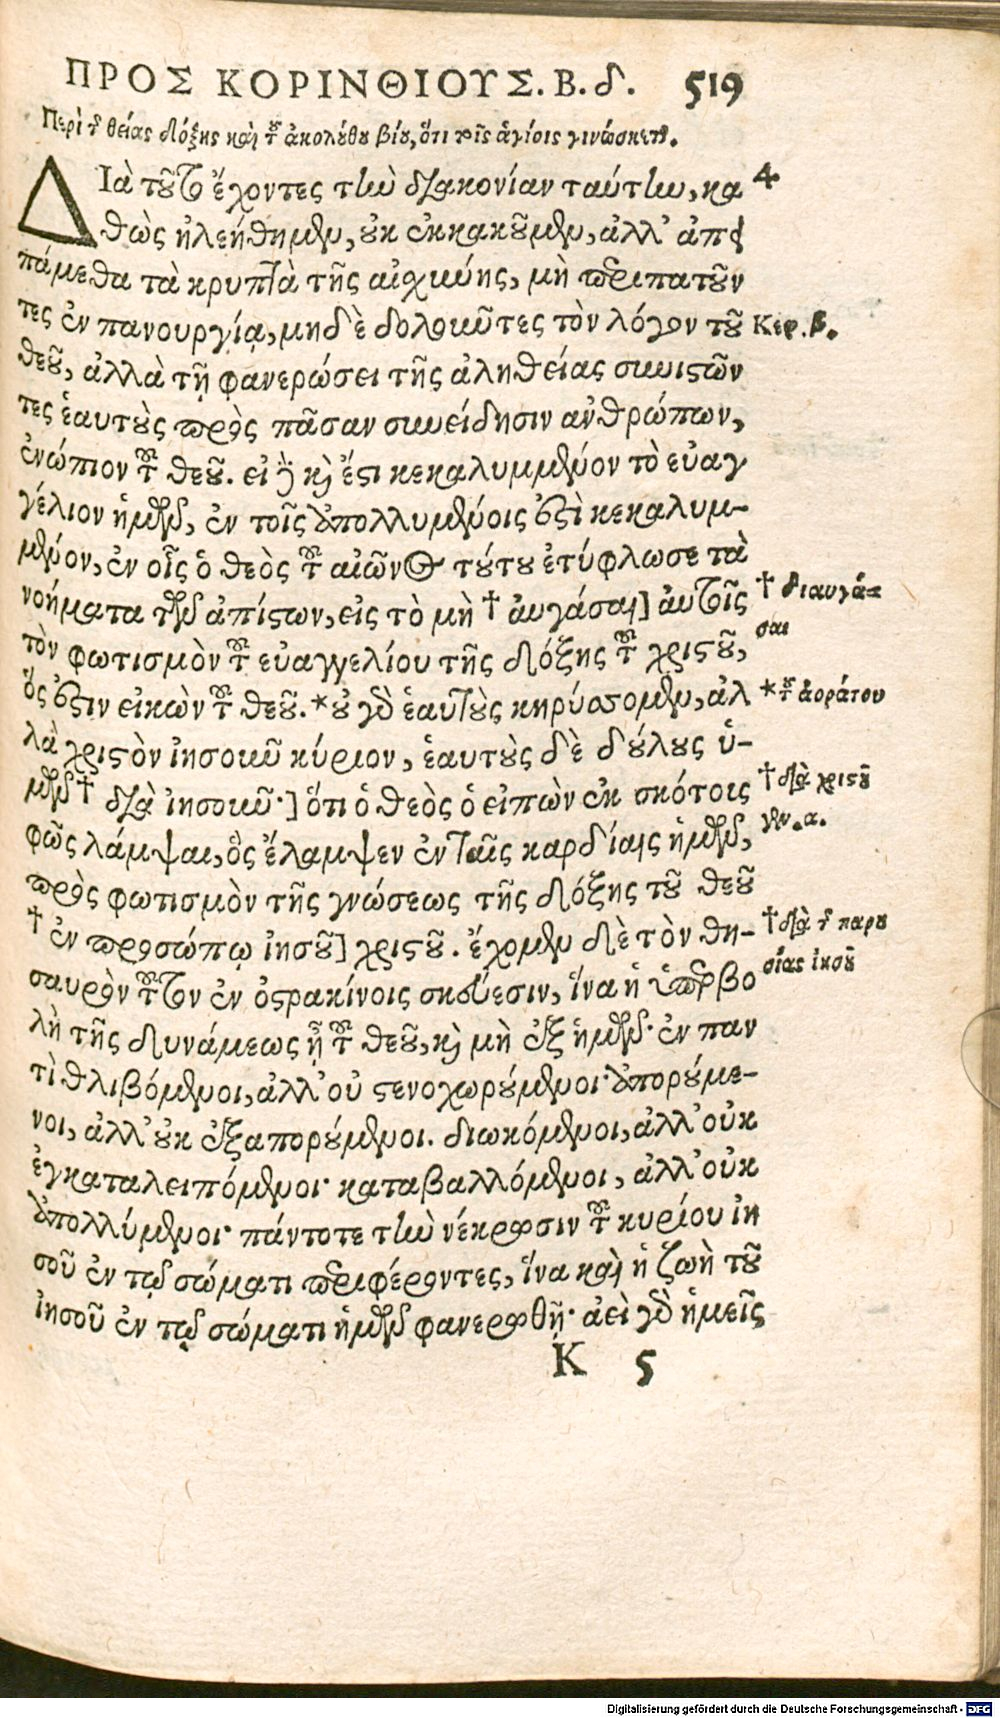 ΠΡΟΣ ΚΟΡΙΝΘΙΟΥΣ. Β. δ. 519
Περὶ τῆς θείας δόξης καὶ τοῦ ἀκολούθου βίου, ὅτι τοῖς ἁγίοις γινώσκεται.
ΔΙὰ τοῦτο ἔχοντες τὴν διακονίαν ταύτην, κα 4
θὼς ἠλεήθημεν, οὐκ ἐκκακοῦμεν, ἀλλ' ἀπει
πάμεθα τὰ κρυπτὰ τῆς αἰσχύνης, μὴ περιπατοῦν
τες ἐν πανουργίᾳ, μηδὲ δολοῦντες τὸν λόγον τοῦ Κεφ. β.
θεοῦ, ἀλλὰ τῇ φανερώσει τῆς ἀληθείας συνιστῶν
τες ἑαυτοὺς πρὸς πᾶσαν συνείδησιν ἀνθρώπων,
ἐνώπιον τοῦ θεοῦ. εἰ δὲ καὶ ἔστι κεκαλυμμένον τὸ εὐαγ
γέλιον ἡμῶν, ἐν τοῖς ἀπολλυμένοις ἐστὶ κεκαλυμ-
μένον, ἐν οἷς ὁ θεὸς τοῦ αἰῶνος τούτου ἐτύφλωσε τὰ
νοήματα τῶν ἀπίστων, εἰς τὸ μὴ † αὐγάσαι] αὐτοῖς † διαυγά=
σαι
τὸν φωτισμὸν τοῦ εὐαγγελίου τῆς δόξης τοῦ χριστοῦ,
ὅς ἐστιν εἰκὼν τοῦ θεοῦ. * οὐ γὰρ ἑαυτοὺς κηρύσσομεν, ἀλ * τοῦ ἀοράτου
λὰ χριστὸν ἰησοῦν κύριον, ἑαυτοὺς δὲ δούλους ὑ-
μῶν † διὰ ἰησοῦν·] ὅτι ὁ θεὸς ὁ εἰπὼν ἐκ σκότοις † διὰ χριστοῦ
γεν. α.
φῶς λάμψαι, ὃς ἔλαμψεν ἐν ταῖς καρδίαις ἡμῶν,
πρὸς φωτισμὸν τῆς γνώσεως τῆς δόξης τοῦ θεοῦ
† ἐν προσώπῳ ἰησοῦ] χριστοῦ. ἔχομεν δὲ τὸν θη- † διὰ τῆς παρου
σίας ἰησοῦ
σαυρὸν τοῦτον ἐν ὀστρακίνοις σκεύεσιν, ἵνα ἡ ὑπερβο
λὴ τῆς δυνάμεως ᾖ τοῦ θεοῦ, καὶ μὴ ἐξ ἡμῶν· ἐν παν
τὶ θλιβόμενοι, ἀλλ' οὐ στενοχωρούμενοι· ἀπορούμε-
νοι, ἀλλ' οὐκ ἐξαπορούμενοι. διωκόμενοι, ἀλλ' οὐκ
ἐγκαταλειπόμενοι· καταβαλλόμενοι, ἀλλ' οὐκ
ἀπολλύμενοι· πάντοτε τὴν νέκρωσιν τοῦ κυρίου ἰη
σοῦ ἐν τῷ σώματι περιφέροντες, ἵνα καὶ ἡ ζωὴ τοῦ
ἰησοῦ ἐν τῷ σώματι ἡμῶν φανερωθῇ· ἀεὶ γὰρ ἡμεῖς
K 5
Digitalisierung gefördert durch die Deutsche Forschungsgemeinschaft - DFG